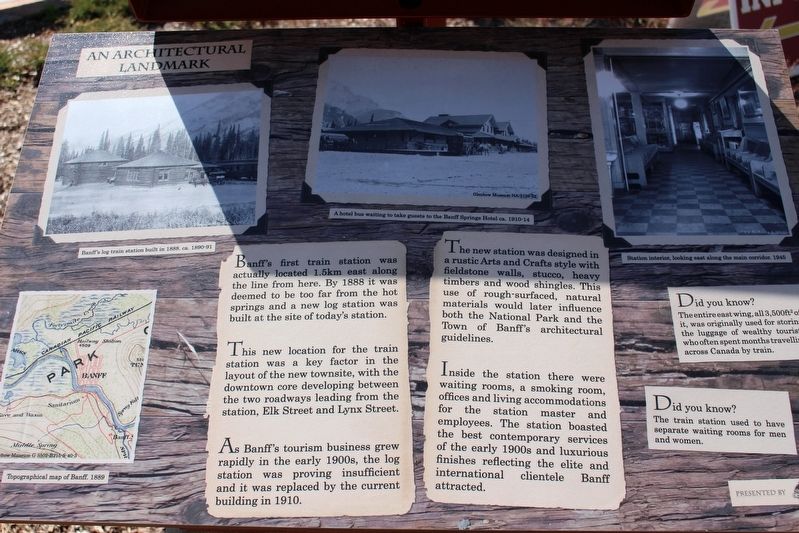 AN ARCHITECTURAL
LANDMARK
Banff's log train station built in 1888, ca. 1890-91
Glenbow Museum NA-
A hotel bus waiting to take guests to the Banff Springs Hotel ca. 1910-14
Station interior, looking east along the main corridor. 1945
Banff's first train station was
actually located 1.5km east along
the line from here. By 1888 it was
deemed to be too far from the hot
springs and a new log station was
built at the site of today's station.
This new location for the train
station was a key factor in the
layout of the new townsite, with the
downtown core developing between
the two roadways leading from the
station, Elk Street and Lynx Street.
As Banff's tourism business grew
rapidly in the early 1900s, the log
station was proving insufficient
and it was replaced by the current
building in 1910.
The new station was designed in
a rustic Arts and Crafts style with
fieldstone walls, stucco, heavy
timbers and wood shingles. This
use of rough-surfaced, natural
materials would later influence
both the National Park and the
Town of Banff's architectural
guidelines.
Inside the station there were
waiting rooms, a smoking room,
offices and living accommodations
for the station master and
employees. The station boasted
the best contemporary services
of the early 1900s and luxurious
finishes reflecting the elite and
international clientele Banff
attracted.
Did you know?
The entire east wing, all 3,500ft² of
it, was originally used for storin
the luggage of wealthy tourist
who often spent months travelli
across Canada by train.
Did you know?
The train station used to have
separate waiting rooms for men
and women.
PRESENTED BY
CANADIAN PACIFIC RAILWAY
Railway Station
PARK
BANFF
Sanitarium
Cave and Basin
Middle Spring
Topographical map of Banff. 1889